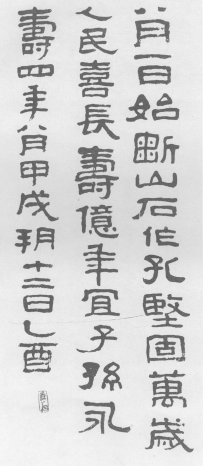 八月一日始斷山石作孔堅固萬歲
人民喜長壽億年宜子孫永
壽四年八月甲戌朔十二日乙酉